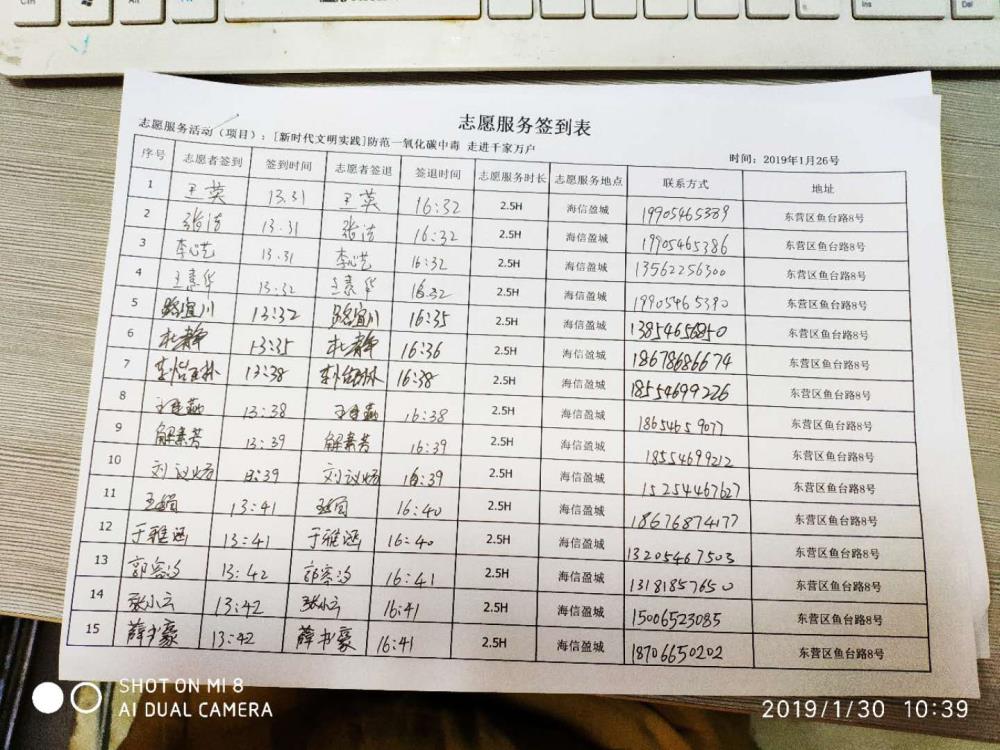 志愿服务签到表
志愿服务活动（项目）：[新时代文明实践]防范一氧化碳中毒 走进千家万户
时间：2019年1月26号
序号 志愿者签到 签到时间 志愿者签退 签退时间 志愿服务时长 志愿服务地点 联系方式 地址
1 王英 13.31 王英 16:32 2.5H 海信盈城 19905465389 东营区鱼台路8号
2 张洁 13.31 张洁 16:32 2.5H 海信盈城 19905465386 东营区鱼台路8号
3 李心艺 13.31 李心艺 16:32 2.5H 海信盈城 13562256300 东营区鱼台路8号
4 王素华 13:32 王素华 16:32 2.5H 海信盈城 19905465390 东营区鱼台路8号
5 路宜川 13:32 路宜川 16:35 2.5H 海信盈城 13854656850 东营区鱼台路8号
6 杜静 13:35 杜静 16:36 2.5H 海信盈城 18678686674 东营区鱼台路8号
7 13:38 16:38 2.5H 海信盈城 18554699226 东营区鱼台路8号
8 13:38 16:38 2.5H 海信盈城 18654659077 东营区鱼台路8号
9 解素芳 13:39 解素芳 16:39 2.5H 海信盈城 18554699212 东营区鱼台路8号
10 13:39 16:39 2.5H 海信盈城 15254467627 东营区鱼台路8号
11 13:41 16:40 2.5H 海信盈城 18676874177 东营区鱼台路8号
12 于雅涵 13:41 于雅涵 16:40 2.5H 海信盈城 13205467503 东营区鱼台路8号
13 郭容汐 13:42 郭容汐 16:41 2.5H 海信盈城 13181857650 东营区鱼台路8号
14 张小云 13:42 张小云 16:41 2.5H 海信盈城 15006523085 东营区鱼台路8号
15 薛书豪 13:42 薛书豪 16:41 2.5H 海信盈城 18706650202 东营区鱼台路8号
SHOT ON MI 8
AI DUAL CAMERA
2019/1/30 10:39